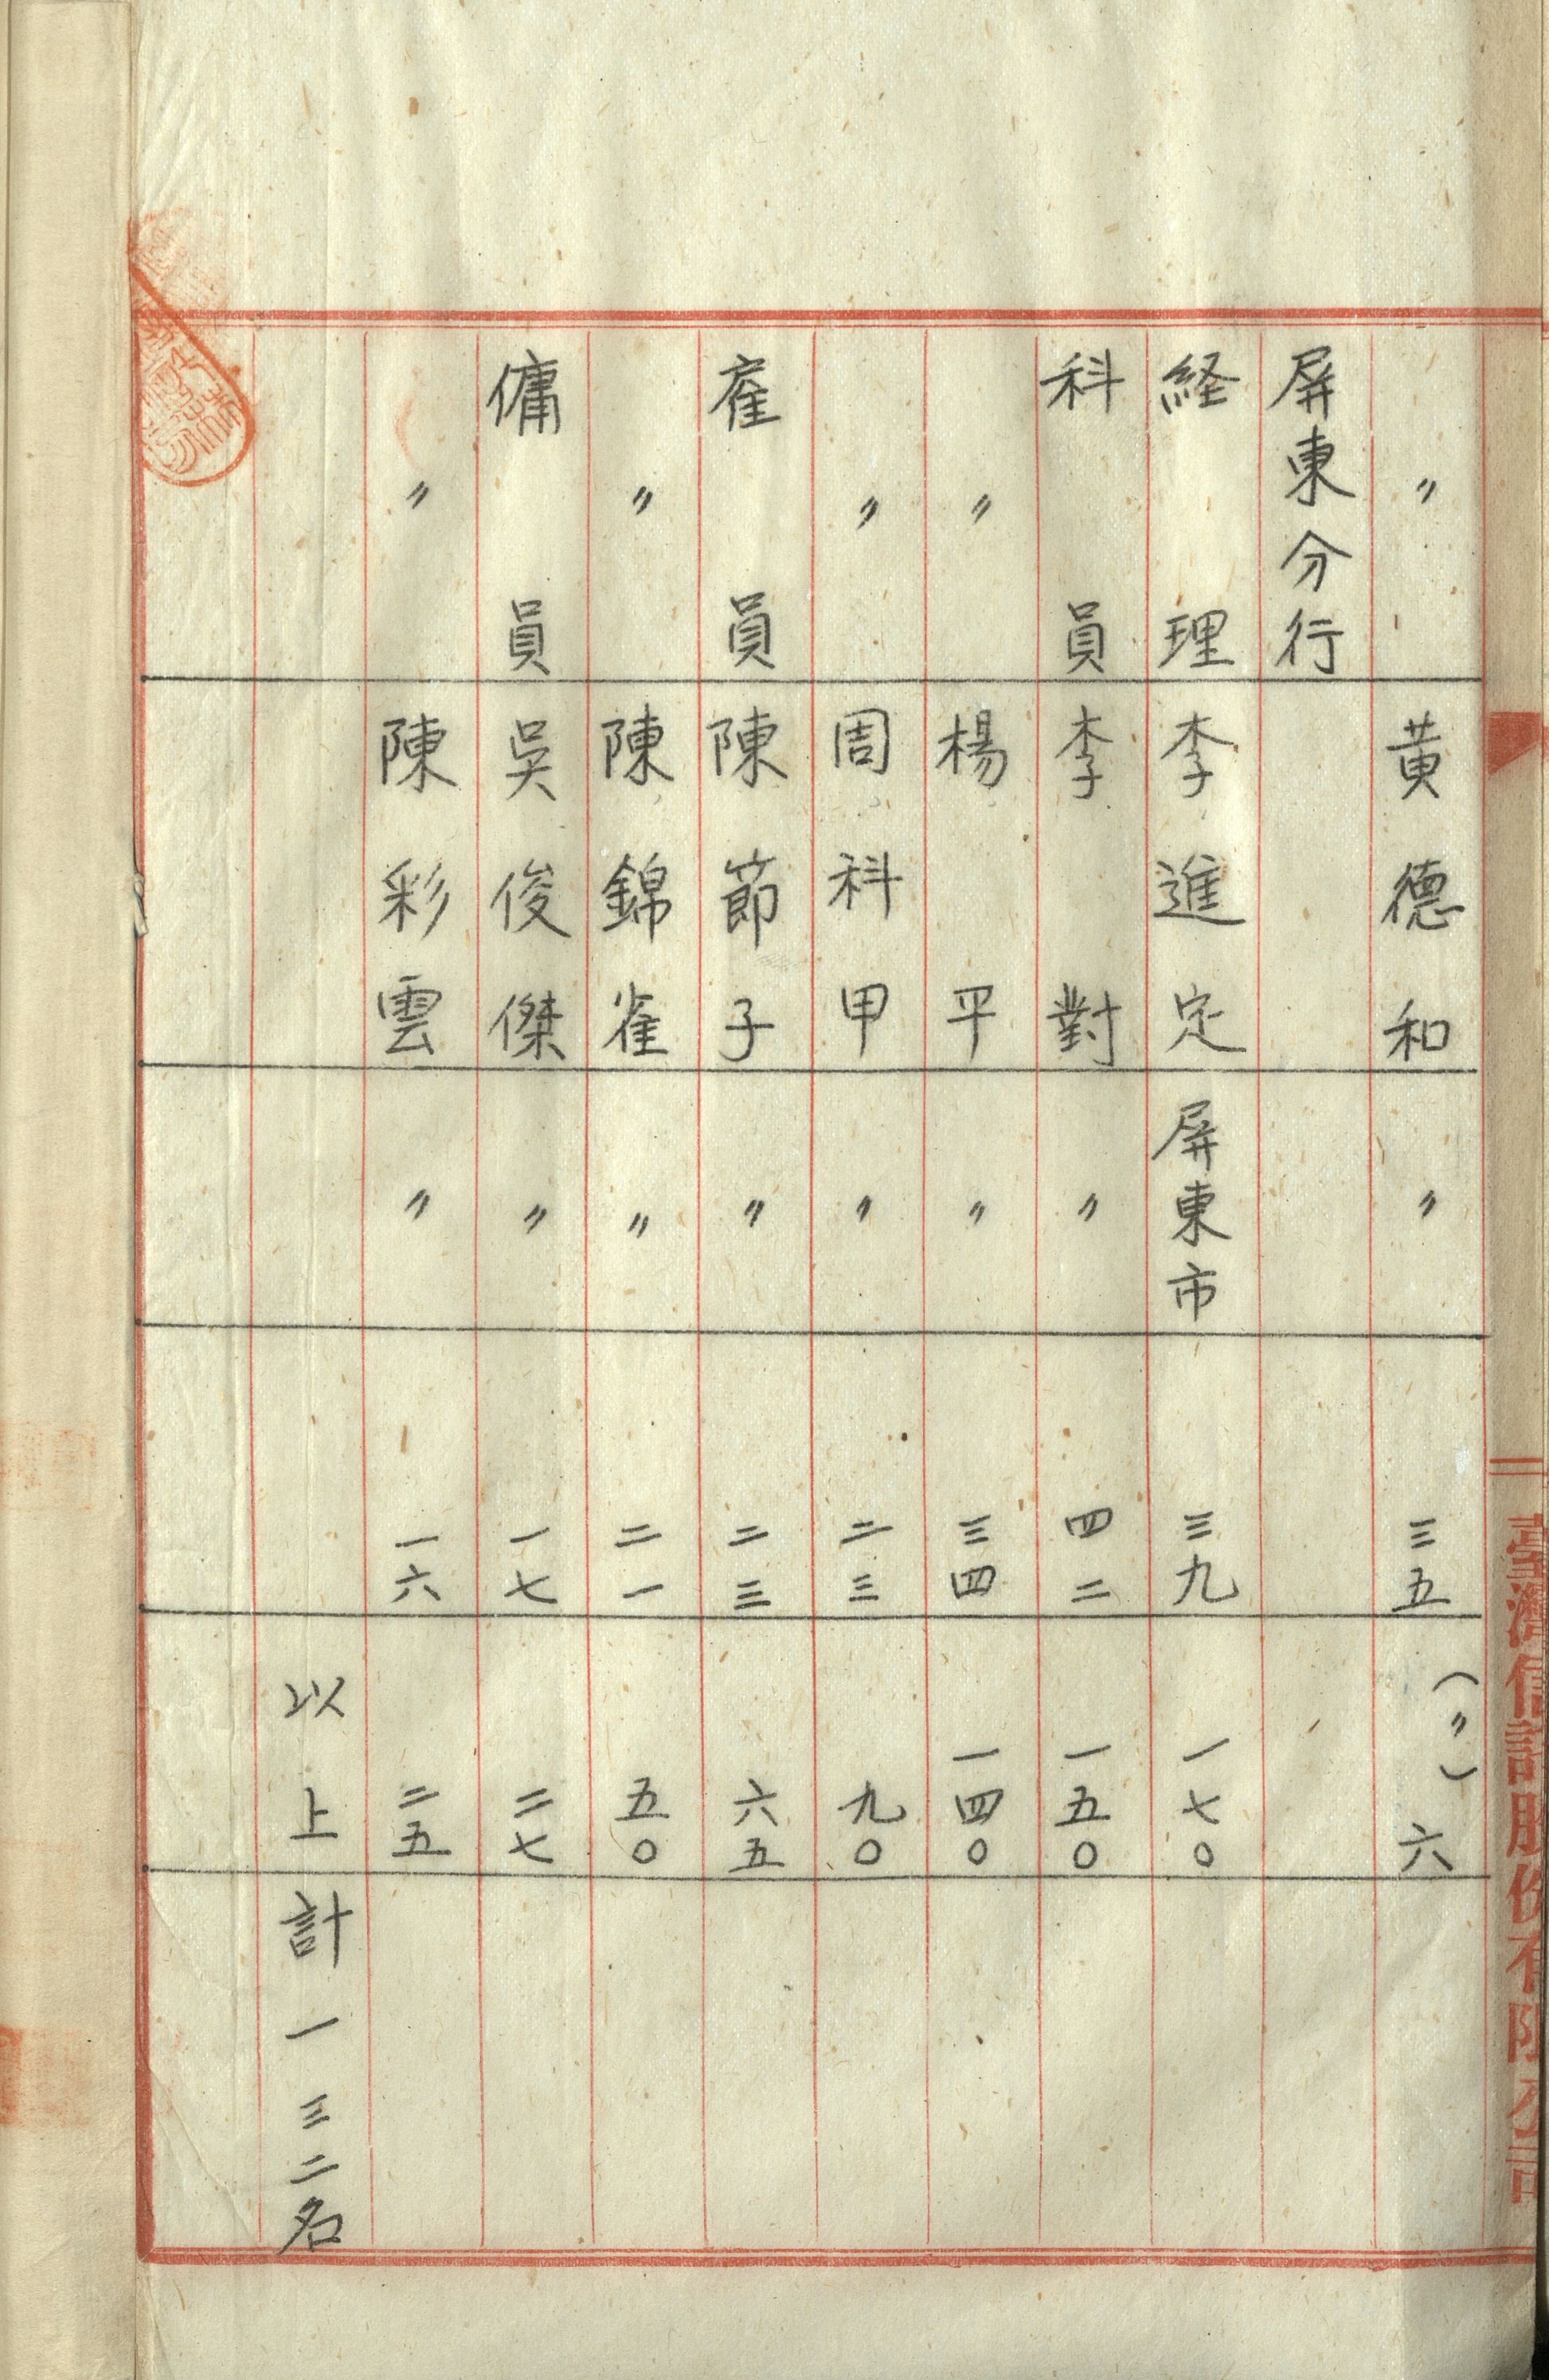 臺灣信託股份有限公司
〃 黃德和 〃 三五 (〃) 六
屏東分行
経理 李進定 屏東市 三九 一七〇
科員 李對 〃 四二 一五〇
〃 楊平 〃 三四 一四〇
〃 周科甲 〃 二三 九〇
雇員 陳節子 〃 二三 六五
〃 陳錦雀 〃 二一 五〇
傭員 吳俊傑 〃 一七 二七
〃 陳彩雲 〃 一六 二五
以上計一三二名